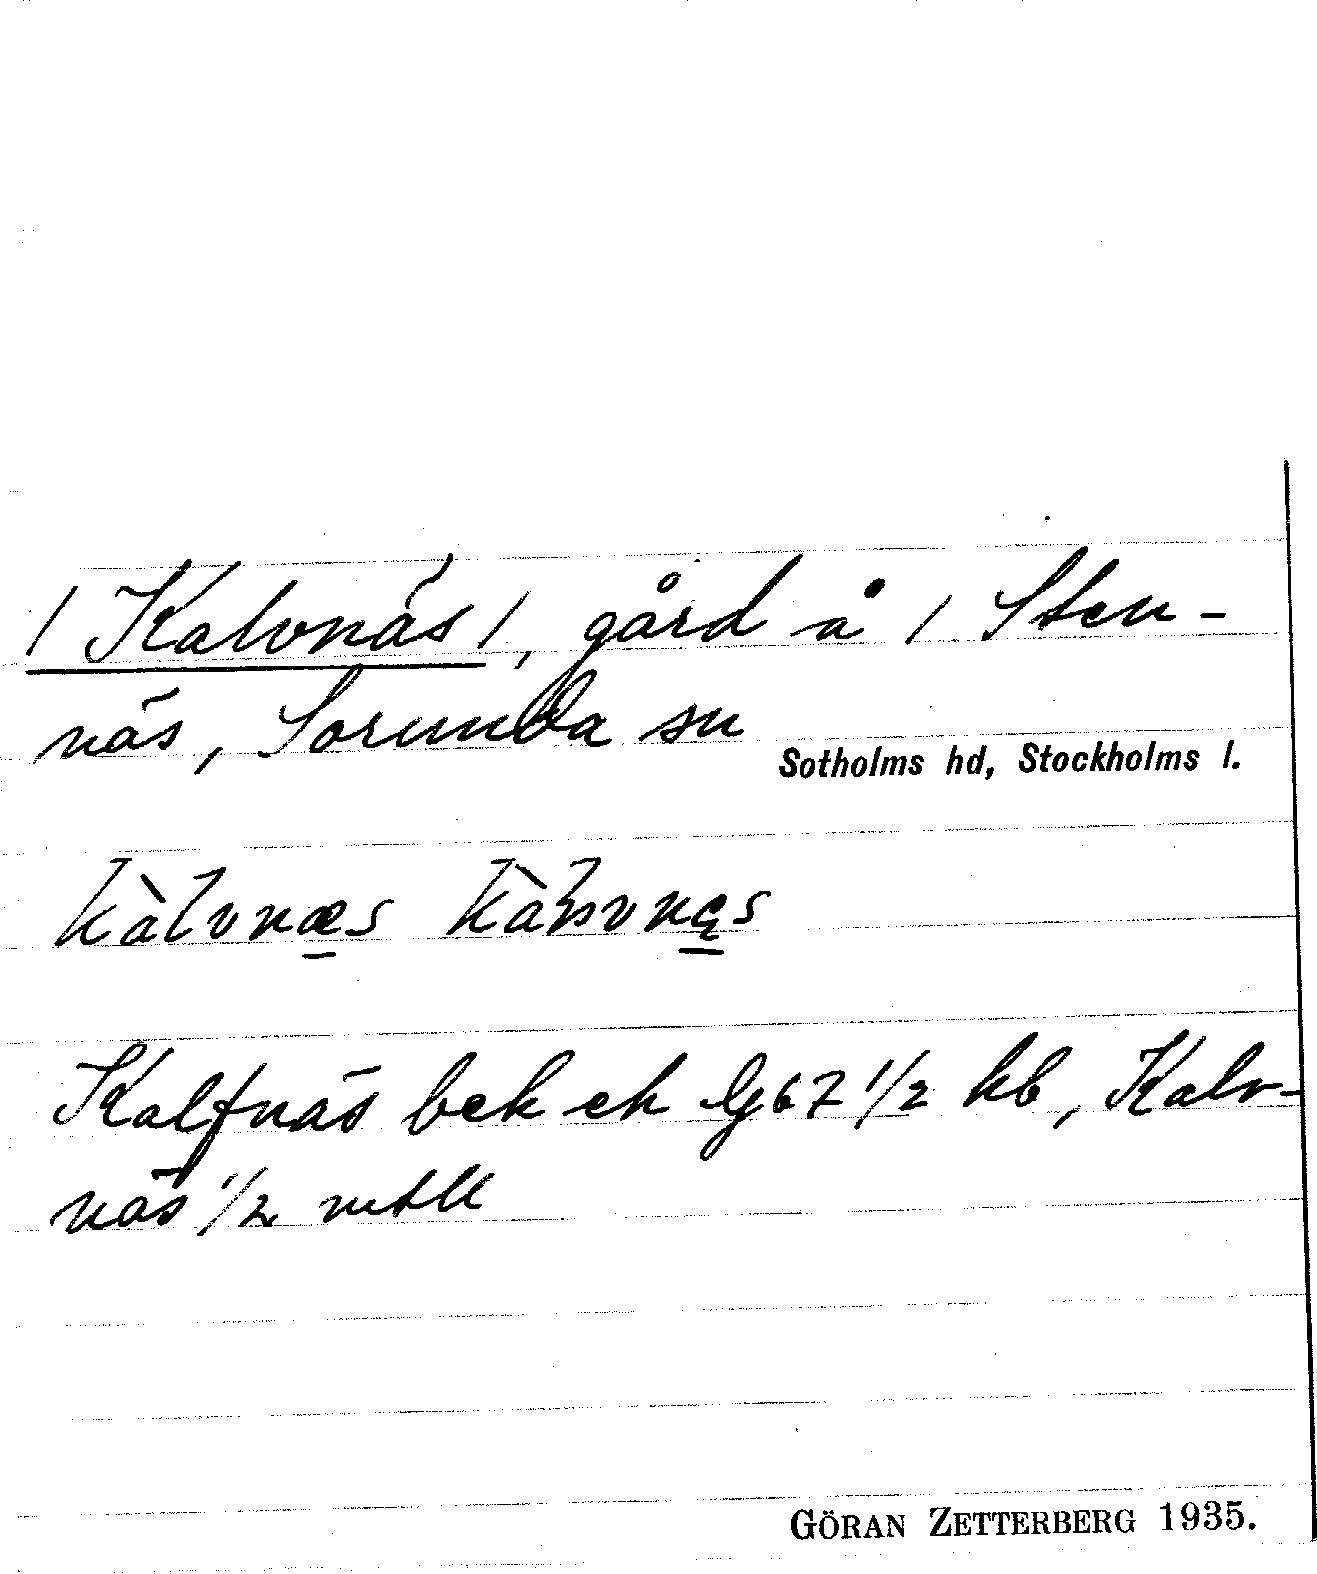 / Kalvnäs /, gård å / Sten-
näs, Sorunda sn
Sotholms hd, Stockholms l.
kàlvnæs
Kalfnäs bek ek lg 67 1/2 hb, Kalv-
näs 1/2 mtll
GÖRAN ZETTERBERG 1935.